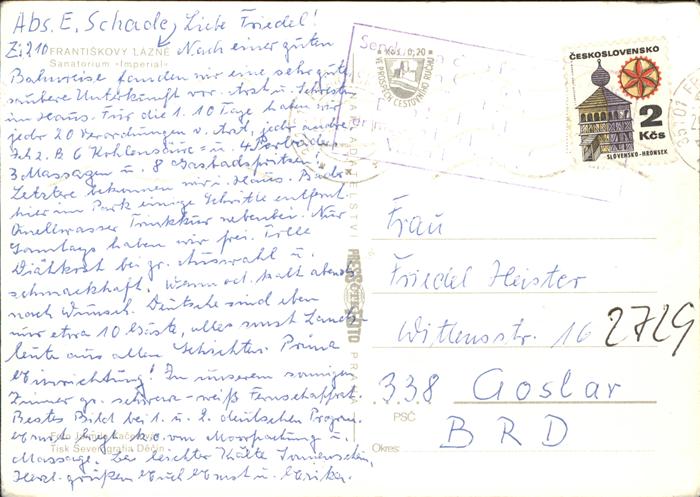 Abs. E. Schade, Liebe Friedel!
Zi. 210 FRANTIŠKOVY LÁZNĚ Nach einer guten
Sanatorium «Imperial»
Bahnreise fanden wir eine sehr gute,
saubere Unterkunft vor. Arzt u. Schwestern
im Haus. Für die 1. 10 Tage haben wir
jeder 20 Verordnungen v. Arzt, jeder andre.
Ich z. B. 6 Kohlensäure= u. 4
3 Massagen u. 8 Gasbadspritzen!
Letztere bekommen wir i. Haus. Bade
hier im Park einige Schritte entfernt.
Quellwasser Trinkkur nebenbei. Nur
Sonntags haben wir frei. Tolle
Diätkost bei gr. Auswahl u.
schmackhaft. Warm od. kalt abends
nach Wunsch. Deutsche sind eben
nur etwa 10 Gäste, alles sonst Lands-
leute aus allen Schichten. Prima
Einrichtung! In unserem sonnigen
Zimmer gr. schwarz-weiß Fernsehapparat.
Bestes Bild bei 1. u. 2. deutschen Program.
Ernst liegt k.o. von Moorpackung u.
Tisk Severografia Děčín
Massage. Bei leichter Kälte Sonnenschein.
Herzl. grüßen Euch Ernst u. Erika.
Kčs 0,20
VE PROSPĚCH CESTOVNÍHO RUCHU
PRESSFOTO
PRAHA
ČESKOSLOVENSKO
2
Kčs
SLOVENSKO-HRONSEK
Frau
Friedel Heister
Wittenstr. 16 2729
338 Goslar
PSČ
BRD
Okres: